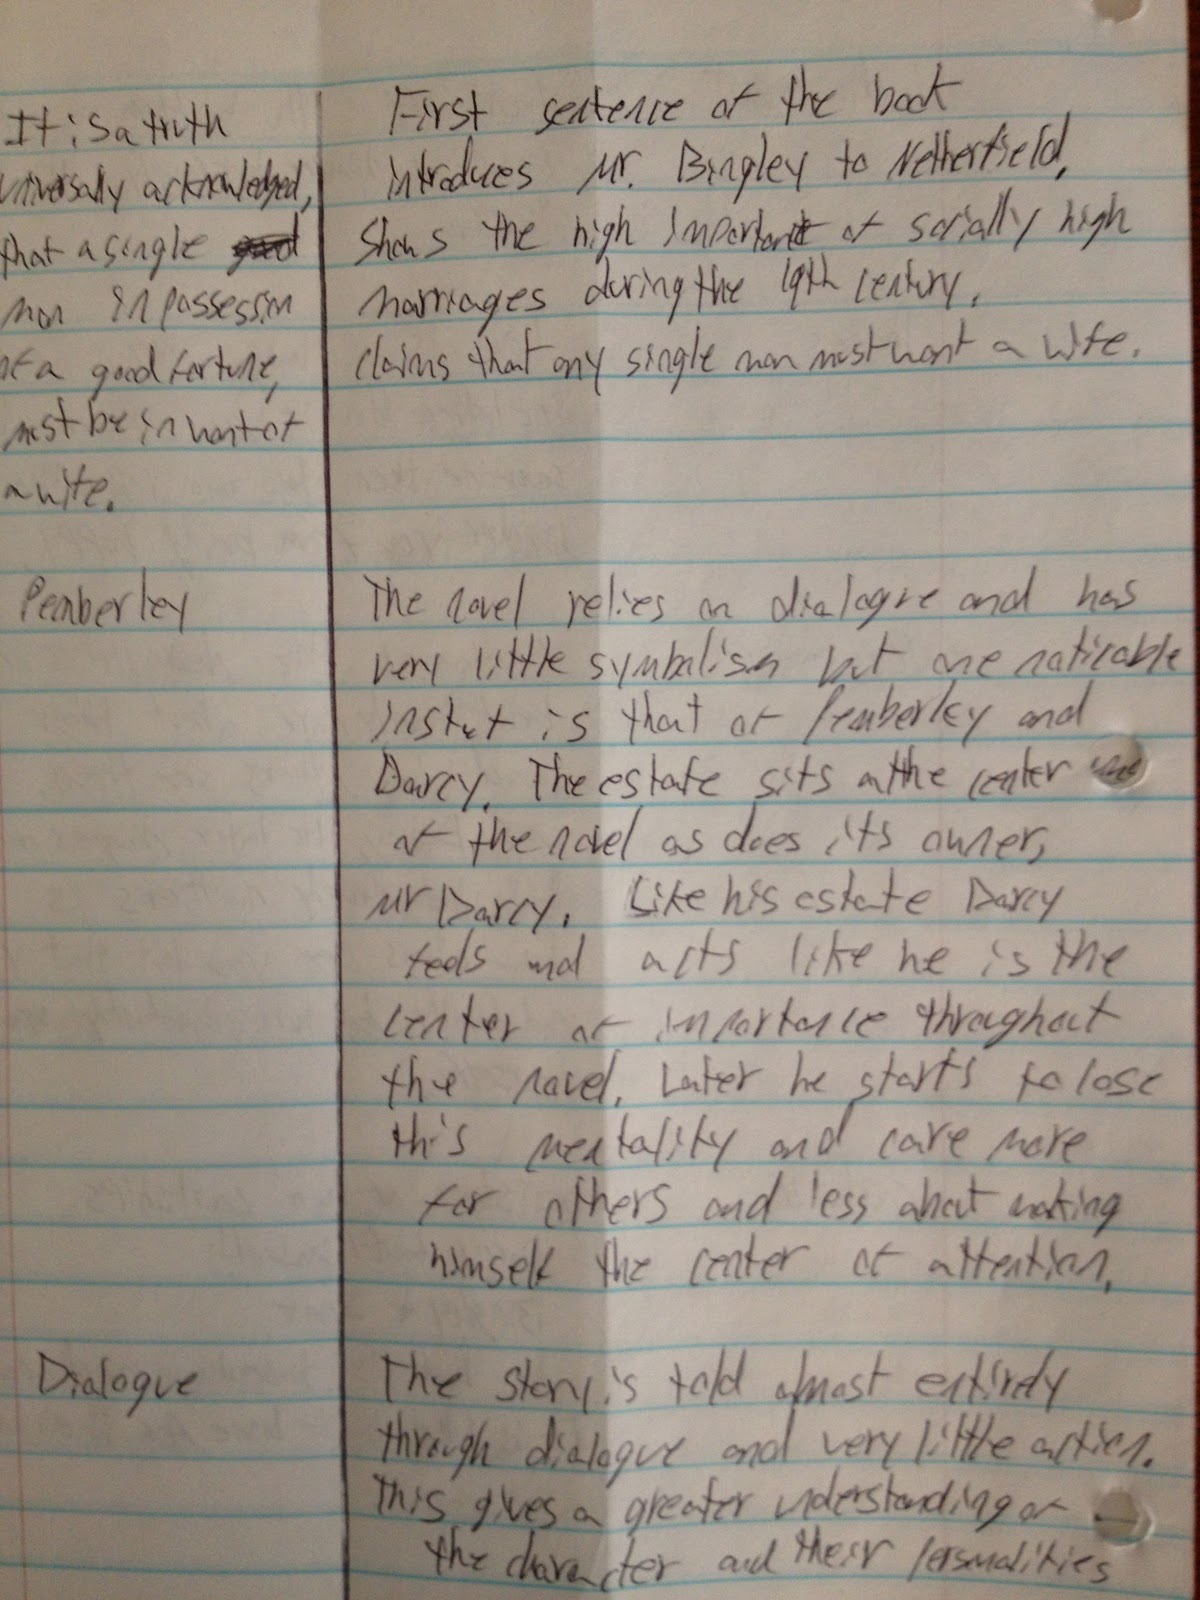 It is a truth
universally acknowledged,
that a single
man in possession
of a good fortune,
must be in want of
a wife.
First sentence of the book
introduces Mr. Bingley to Netherfield,
Shows the high important of socially high
marriages during the 19th century.
claims that any single man must want a wife.
Pemberley
The novel relies on dialogue and has
very little symbolism but one noticable
is that of Pemberley and
Darcy. The estate sits at the center
of the novel as does its owner,
Mr Darcy. Like his estate Darcy
feels and acts like he is the
center of importance throughout
the novel. Later he starts to lose
this mentality and care more
for others and less about making
himself the center of attention.
Dialogue
The story is told almost entirely
through dialogue and very little action.
This gives a greater understanding of
the character and their personalities